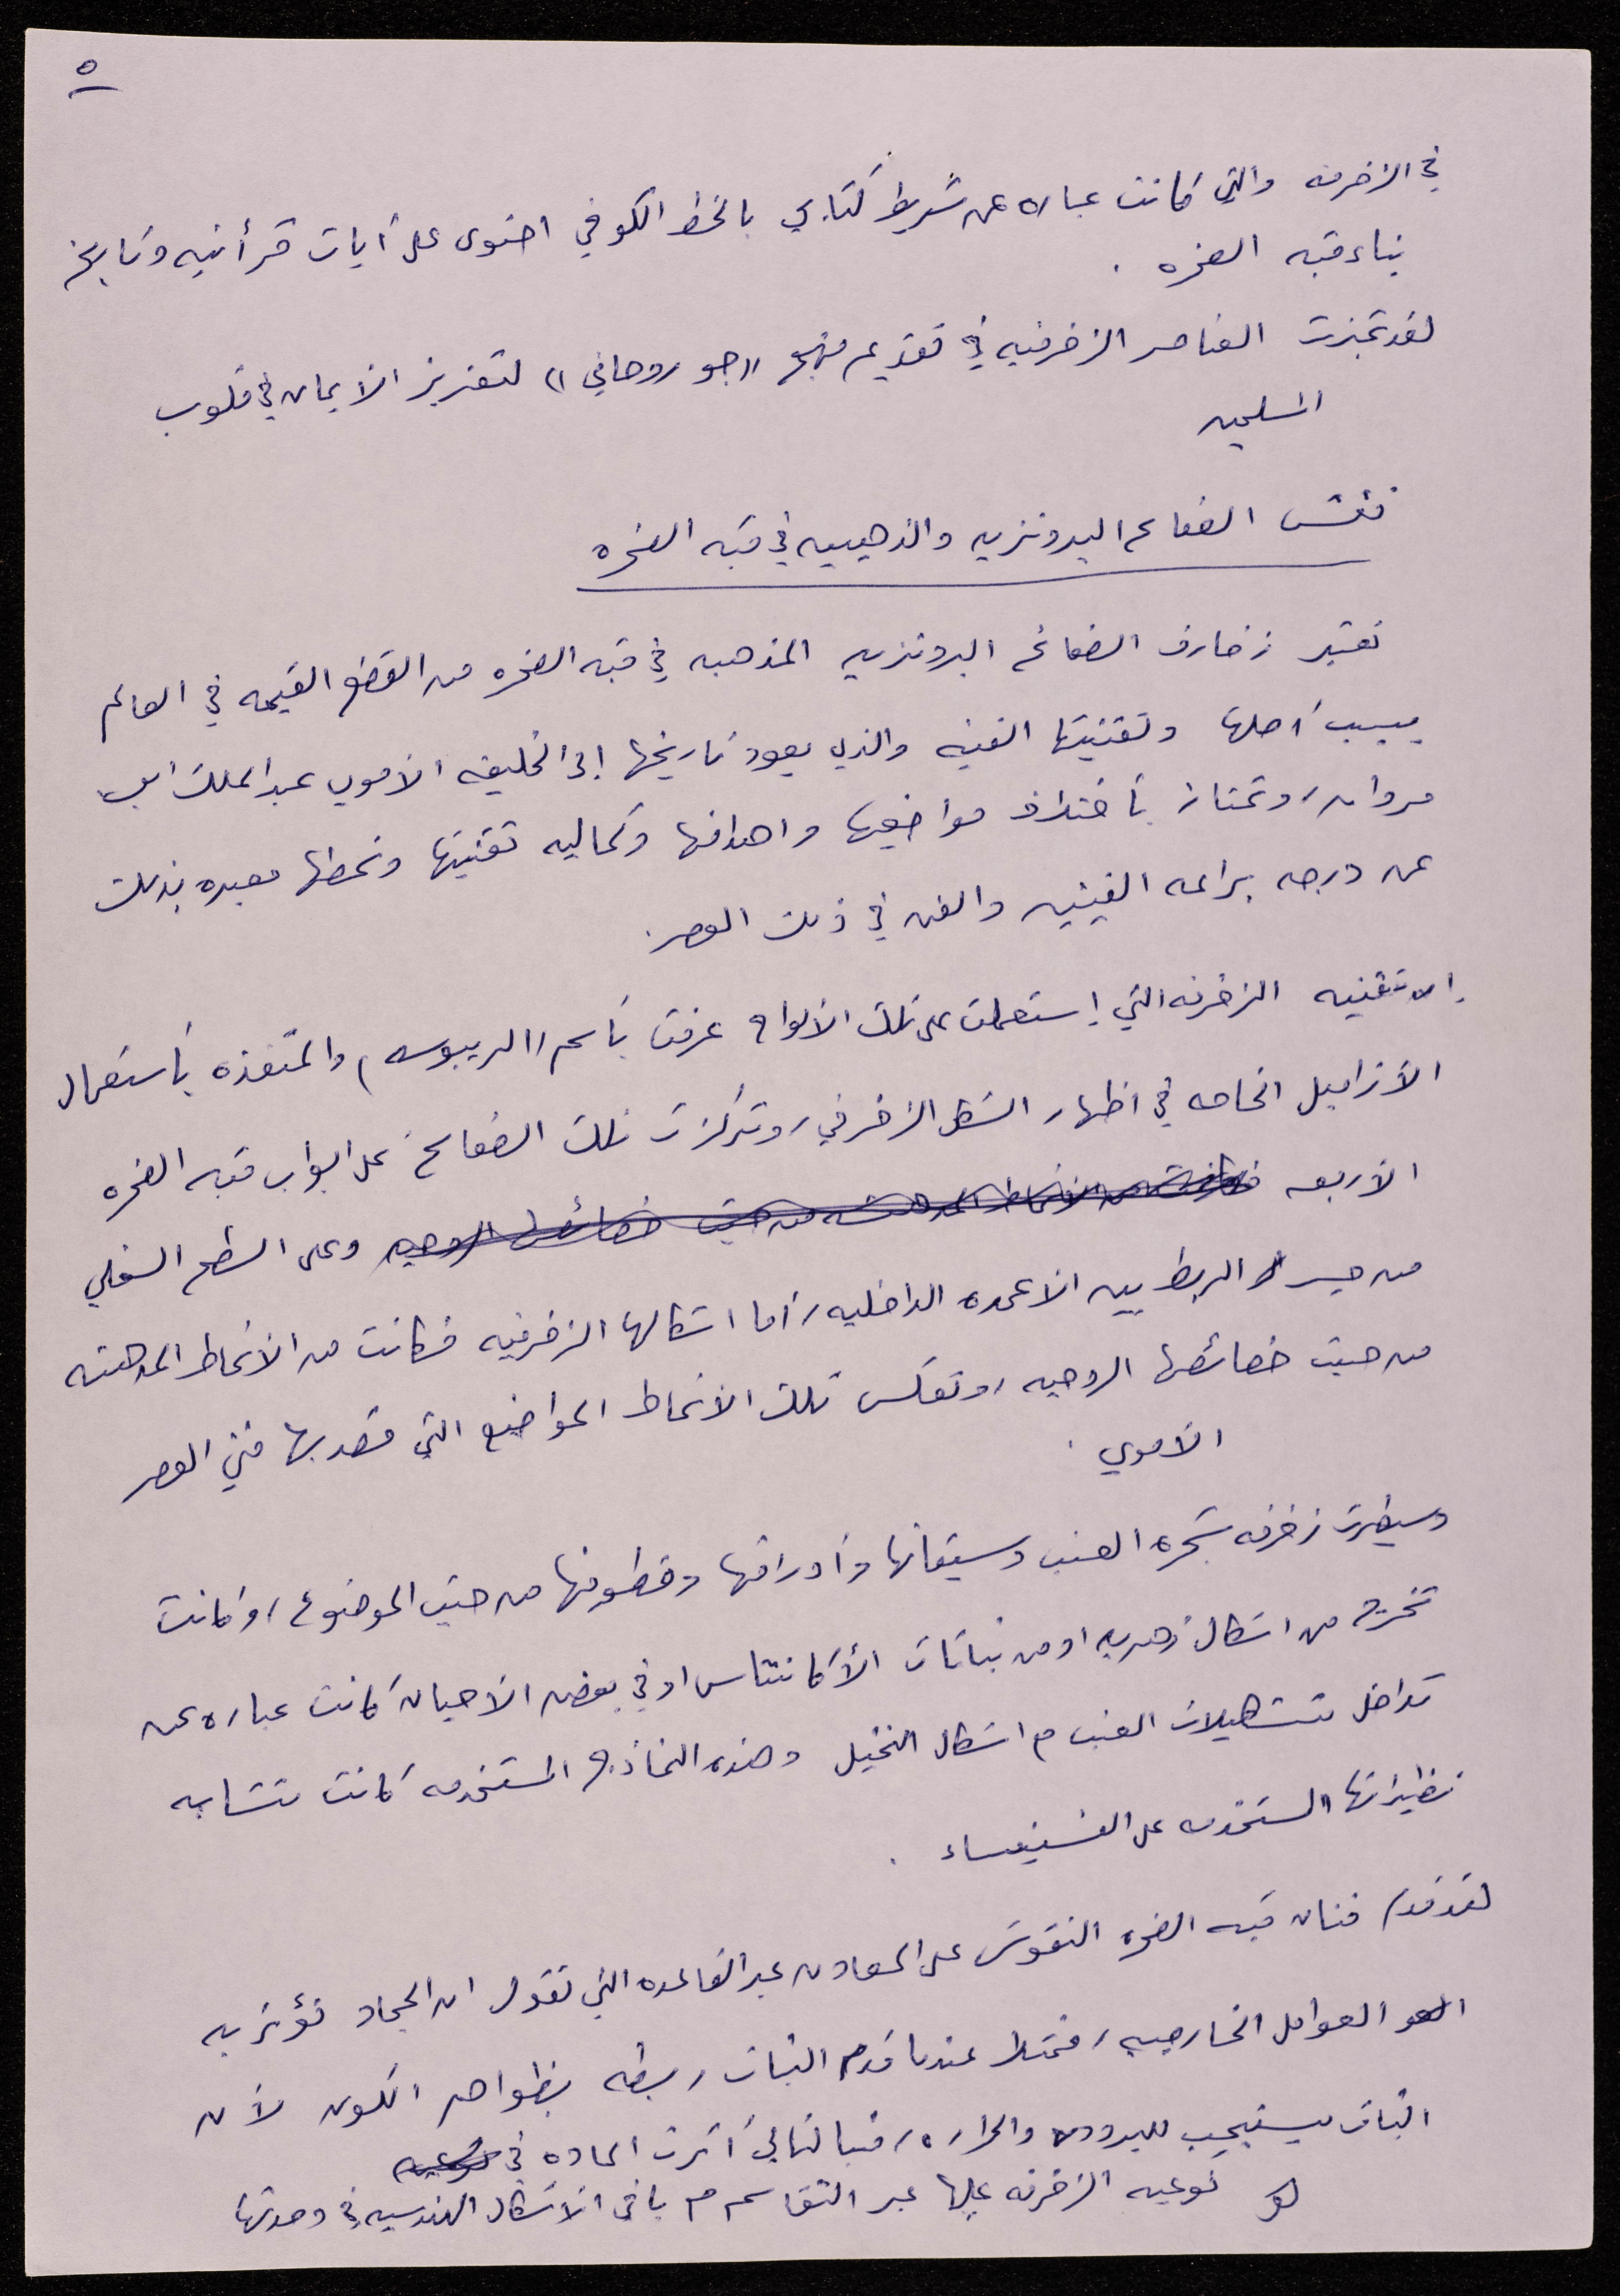 ٥
في الزخرفه والتي كانت عباره عن شريط كتابي بالخط الكوفي احتوى على أيات قرأنيه وتاريخ
بناء قبه الصخره .
لقد تميزت العناصر الزخرفيه في تقديم منهج "جو روحاني" لتعزيز الايمان في قلوب
المسلمين
نقش الصفائح البرونزيه والذهبيه في قبه الصخره
تعتبر زخارف الصفائح البرونزيه المذهبه في قبه الصخره من القطع القيمه في العالم
بسبب أصلها وتقنيتها الفنيه والذي يعود تاريخها إلى الخليفه الأموي عبد الملك ابن
مروان، وتمتاز بأختلاف مواضيعها واهدافها وكماليه تقنيتها ونمطها معبره بذلك
عن درجه براعه الفنيين والفن في ذلك العصر.
إن تقنيه الزخرفه التي إستعملت على تلك الألواح عرفت بأسم (الريبوسه) والمتنفذه بأستعمال
الأزاميل الخاصه في اظهار الشكل الزخرفي، وتركزت تلك الصفائح على ابواب قبه الصخره
الأربعه وعلى السطح السفلي
من جسر الربط بين الاعمده الداخليه، أما اشكالها الزخرفيه فكانت من الأنماط المدهشه
من حيث خصائصها الروحيه، وتعكس تلك الأنماط المواضيع التي قصد بها فني العصر
الأموي .
وسيطرت زخرفه شجره العنب وسيقانها وأوراقها وقطوفها من حيث الموضوع، وكانت
تخرج من اشكال زهريه او من نباتات الأكانتاس او في بعض الأحيان كانت عباره عن
تداخل تشكيلات العنب مع اشكال النخيل وهذه النماذج المستخدمه كانت تتشابه
نظيراتها المستخدمه على الفسيفساء .
لقد قدم فنان قبه الصخره النقوش على المعادن عبر القاعده التي تقول ان الجماد تؤثر به
العوامل الخارجيه، فمثلا عندما قدم النبات ربطه بظواهر الكون لأن
النبات يستجيب للبروده والحراره، فبالتالي أثرت الماده في
نوعيه الزخرفه عليها عبر التقاسم مع باقي الأشكال الهندسيه في وحدتها